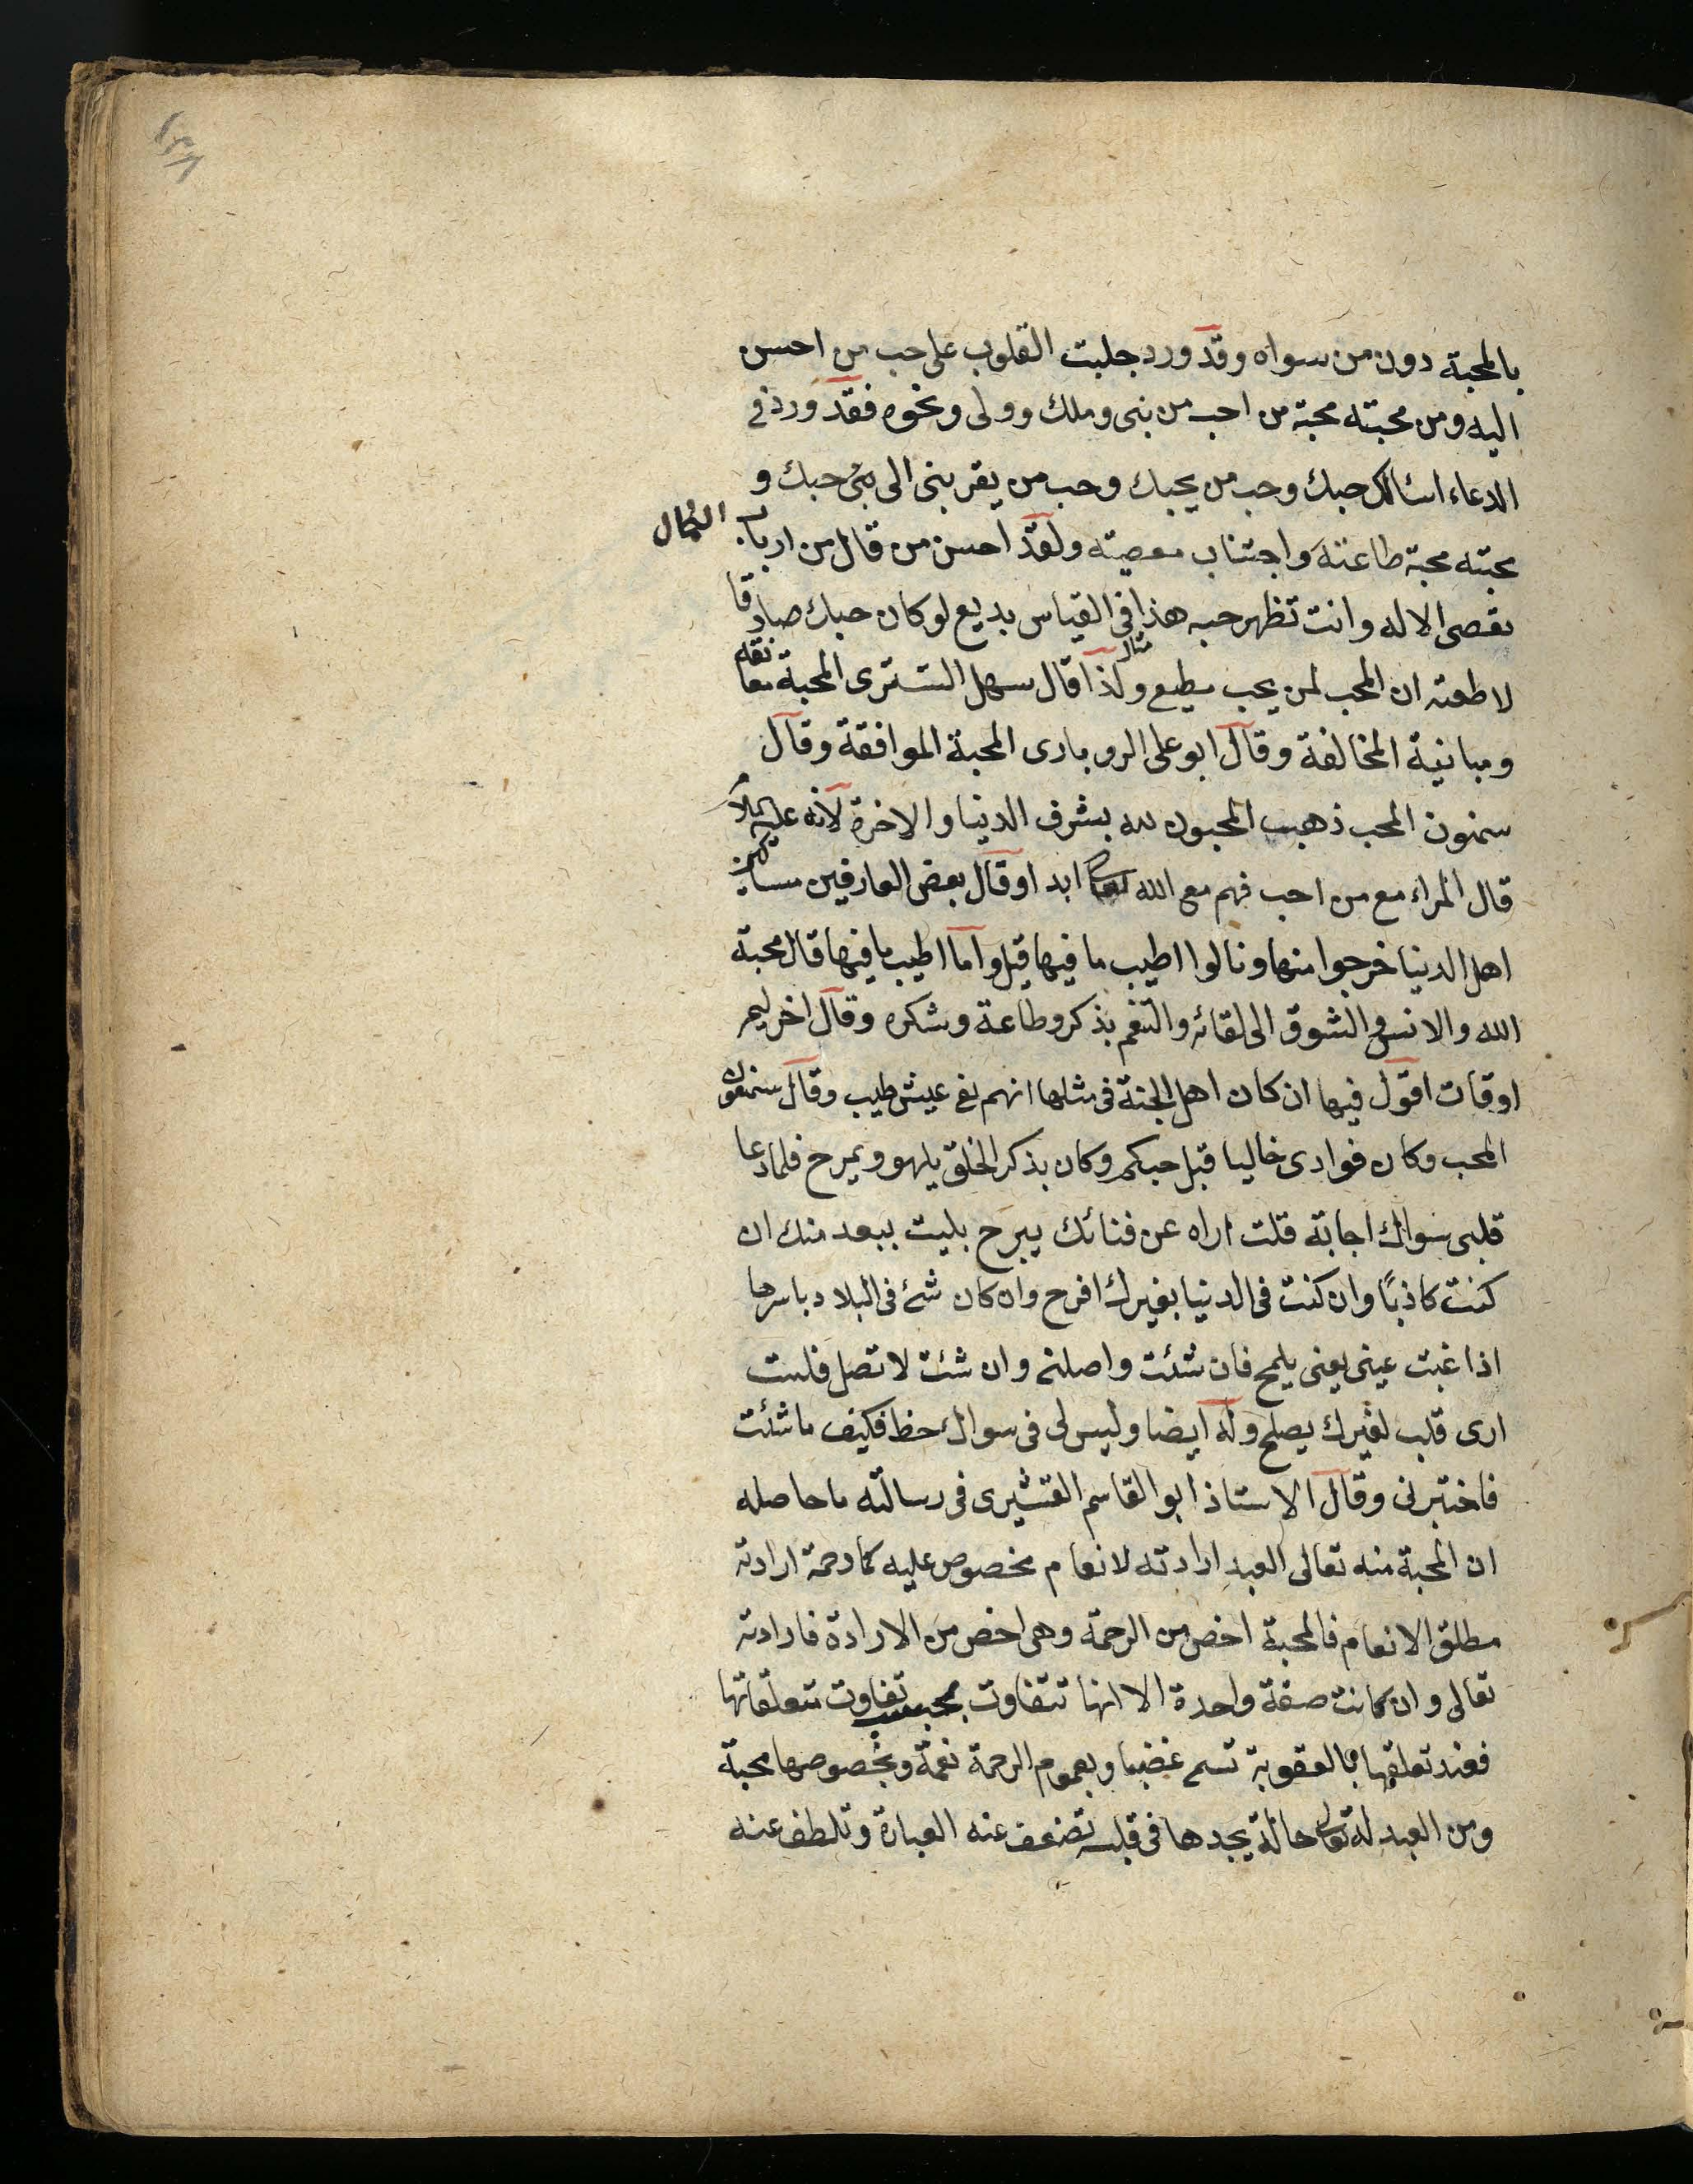 بالمحبة دون من سواه وقد ورد جلبت القلوب على حب من احسن
اليه ومن محبته محبة من احب من نبى وملك وولى ونحوه فقد ورد فى
الدعاء اسئالك حبك وحب من يحبك وحب من يقربنى الى حبك و
محبته محبة طاعته واجتناب معصيته ولقد احسن من قال من ارباب الكمال
تعصى الاله وانت تظهر حبه هذا فى القياس بديع لو كان حبك صادقا
لاطعته ان المحب لمن يحب مطيع ولذا قال سهل التسترى المحبة معانقة
ومباينة المخالفة وقال ابو على الروبارى المحبة الموافقة وقال
سمنون المحب ذهب المحبون لله بشرف الدنيا والاخرة لانه عليه السلام
قال المراء مع من احب فهم مع الله تعالى ابدا وقال بعض العارفين مساكين
اهل الدنيا خرجوا منها ونالوا اطيب ما فيها قيل وما اطيب ما فيها قال محبة
الله والانس والشوق الى لقائه والتنعم بذكر وطاعة وشكره وقال اخر ليمر
اوقات اقول فيها ان كان اهل الجنة فى مثلها انهم لفى عيش طيب وقال سمنون
المحب وكان فوادى خاليا قبل حبكم وكان بذكر الخلق يلهو ويمرح فلما دعا
قلبى سواك اجابة قلت اراه عن فنائك يبرح بليت ببعد منك ان
كنت كاذبًا وان كنت فى الدنيا بغيرك افرح وان كان شئ فى البلاد باسرها
اذا غبت عينى بعينى يلمح فان شئت واصلنى وان شئت لا تصل فلست
ارى قلب لغيرك يصلح وله ايضا وليس لى فى سواك حظ فكيف ما شئت
فاختبرنى وقال الاستاذ ابو القاسم القشيرى فى رسالته ما حاصله
ان المحبة منه تعالى العبد ارادته لانعام مخصوص عليه كما رحمة ارادته
مطلق الانعام فالمحبة اخص من الرحمة وهى اخص من الارادة فارادته
تعالى وان كانت صفة واحدة الا انها تتفاوت بحسب تفاوت متعلقاتها
فعند تعلقها بالعقوبة تسمى غضبا وبعموم الرحمة نعمة وبخصوصها محبة
ومن العبد له تعالى حالة يجدها فى قلبه تضعف عنه العبارة وتلطف عنه